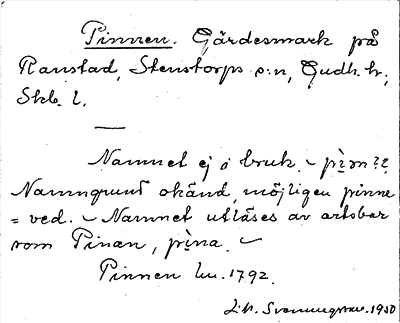 Pinnen. Gärdesmark på
Ranstad, Stenstorps s:n, Gudh. hr,
Skb. l.
Namnet ej i bruk. ~
Namngrund okänd, möjligen pinne
= ved. ~ Namnet utläses av ortsbor
som Pinan, pìna. ~
Pinnen lm. 1792.
1930